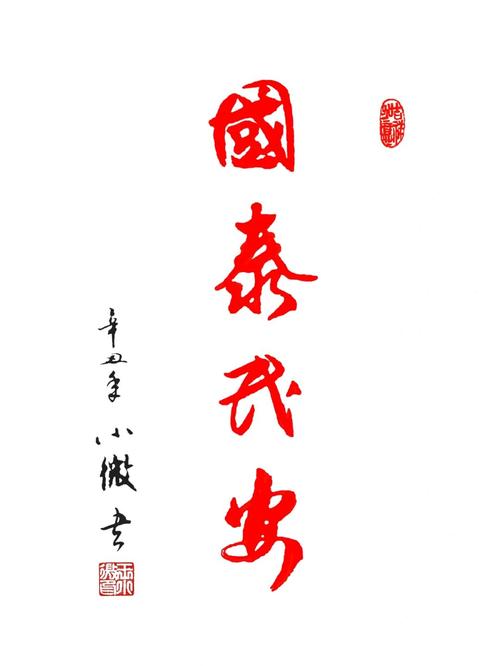 國泰民安
辛丑年 小微书